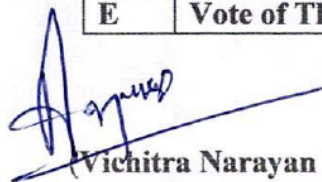 E Vote of Th
(Vichitra Narayan